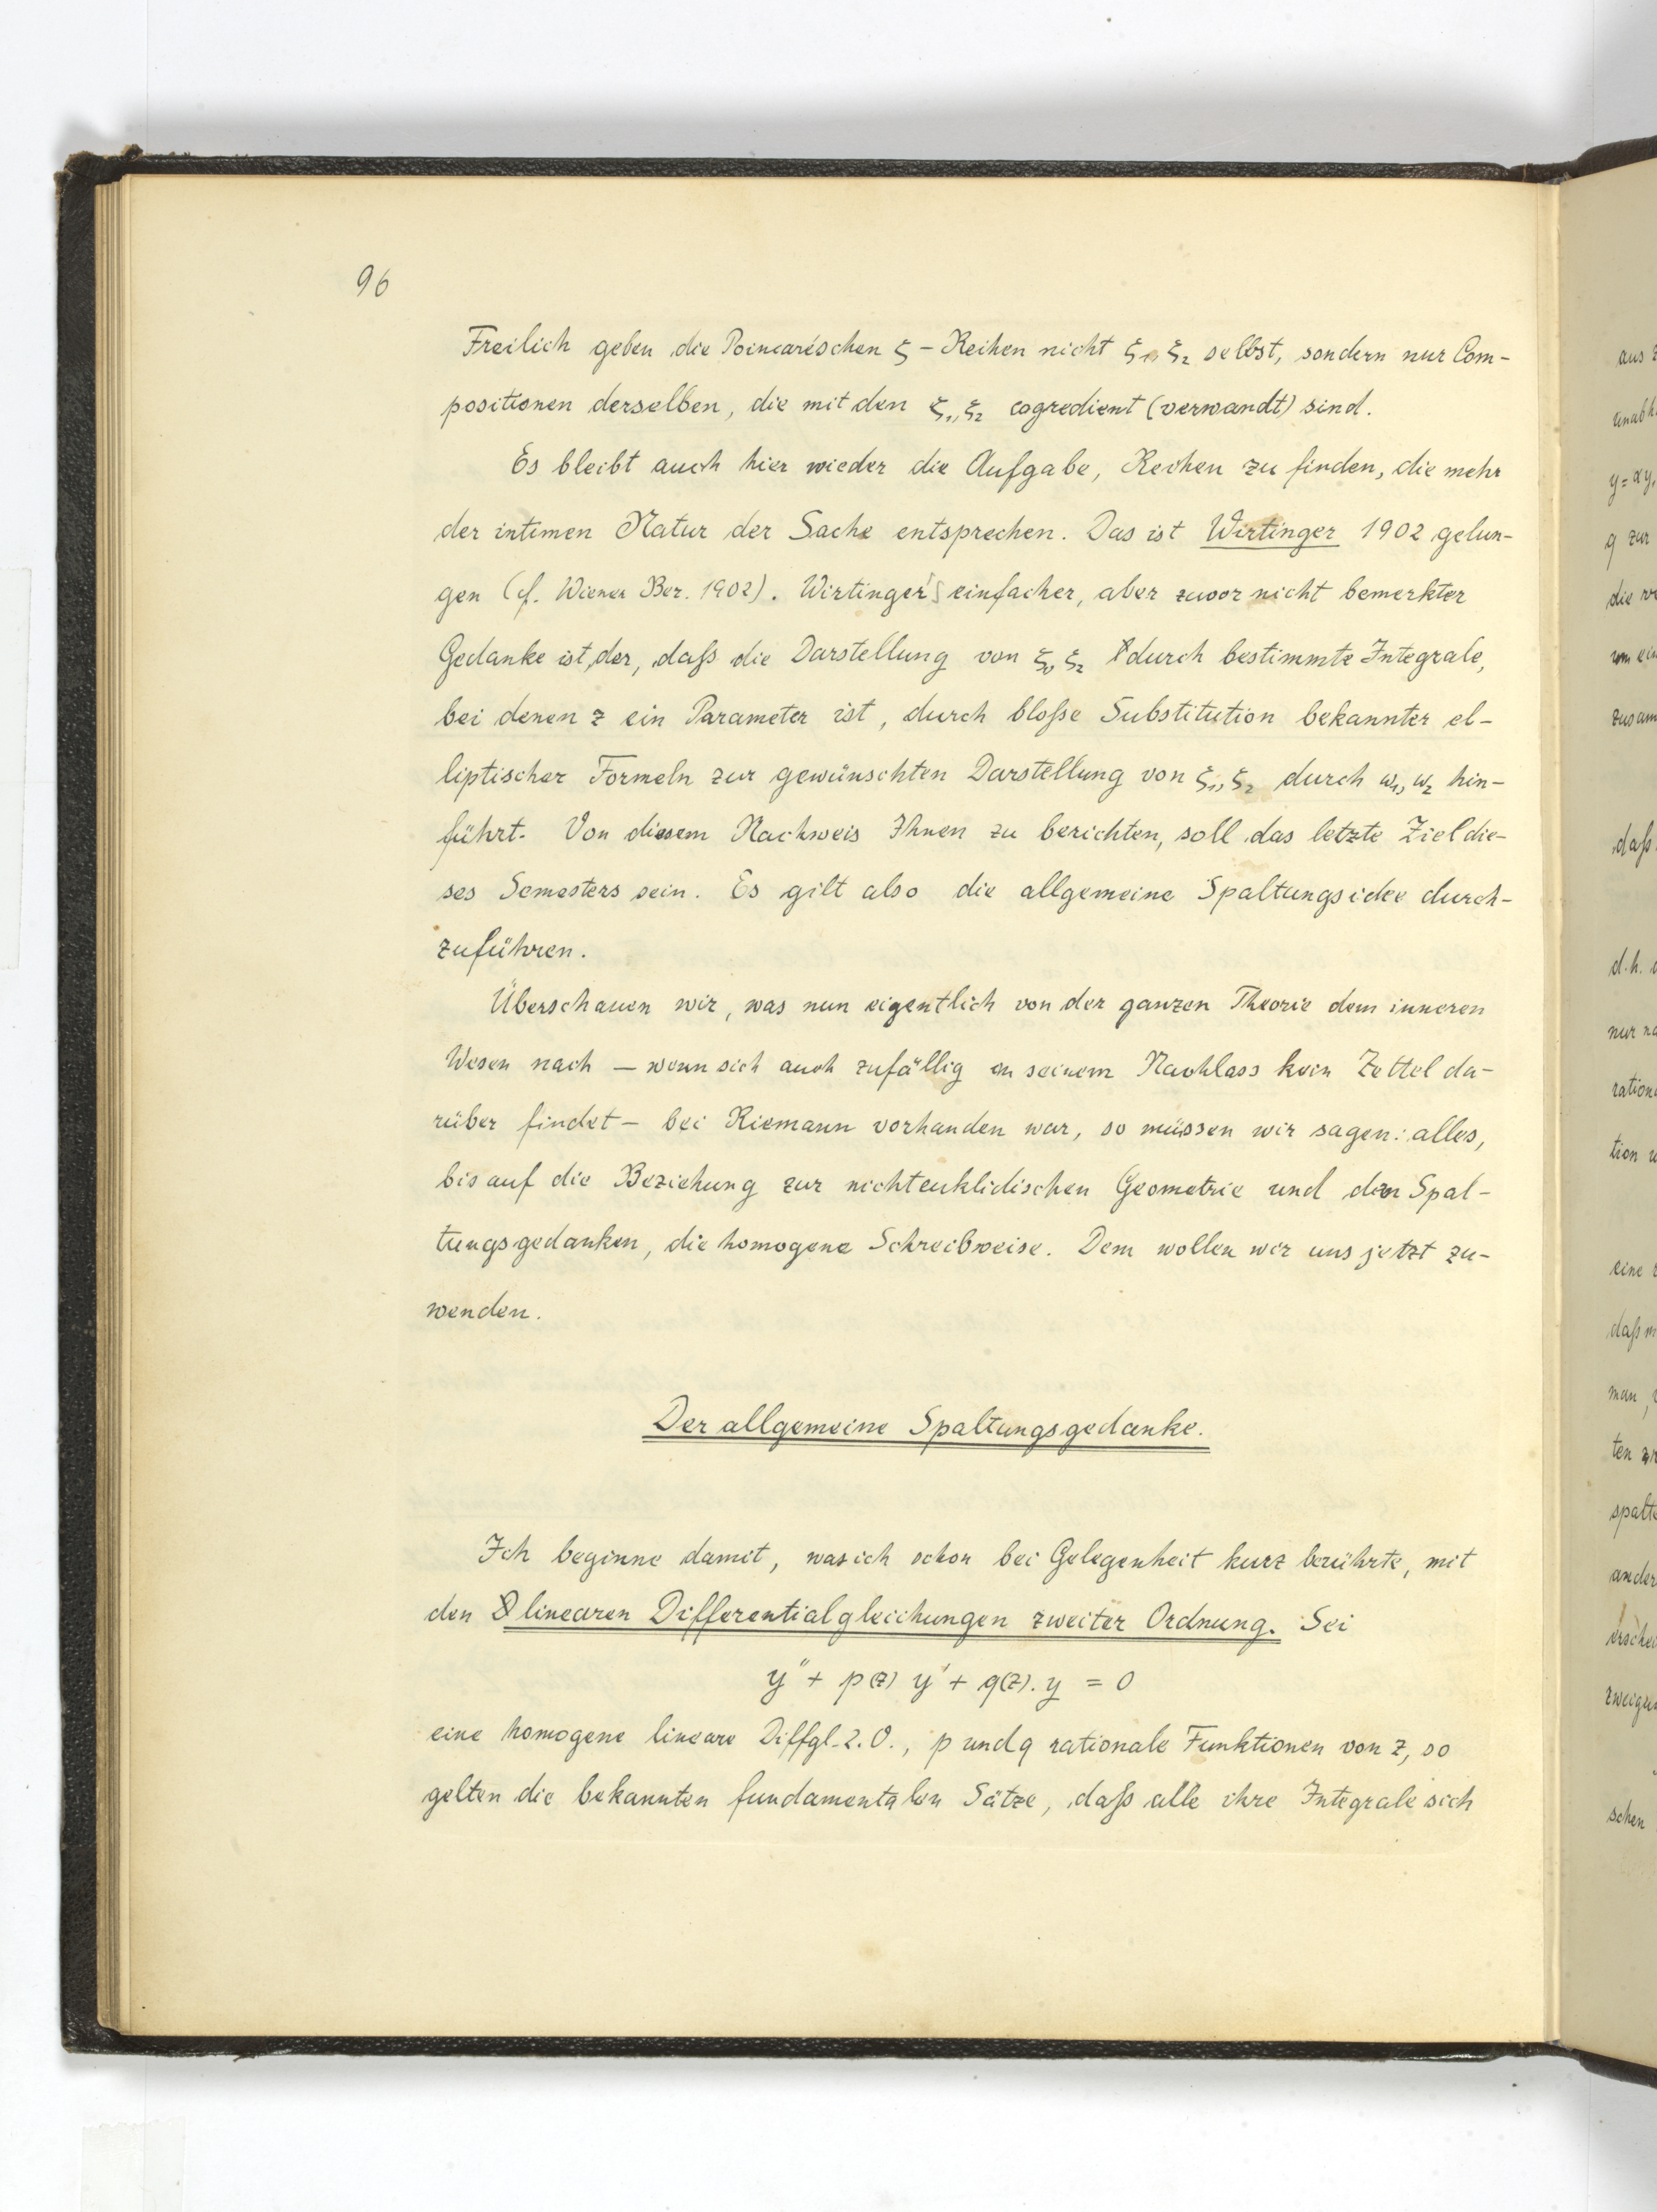 96
Freilich geben die Poincaréschen ζ-Reihen nicht ζ₁, ζ₂ selbst, sondern nur Com-
positionen derselben, die mit den ζ₁, ζ₂ cogredient (verwandt) sind.
Es bleibt auch hier wieder die Aufgabe, Reihen zu finden, die mehr
der intimen Natur der Sache entsprechen. Das ist Wirtinger 1902 gelun-
gen (cf. Wiener Ber. 1902). Wirtinger's einfacher, aber zuvor nicht bemerkter
Gedanke ist, der, daß die Darstellung von ζ₁, ζ₂ durch bestimmte Integrale,
bei denen z ein Parameter ist, durch bloße Substitution bekannter el-
liptischer Formeln zur gewünschten Darstellung von ζ₁, ζ₂ durch ω₁, ω₂ hin-
führt. Von diesem Nachweis Ihnen zu berichten, soll das letzte Ziel die-
ses Semesters sein. Es gilt also die allgemeine Spaltungsidee durch-
zuführen.
Überschauen wir, was nun eigentlich von der ganzen Theorie dem inneren
Wesen nach — wenn sich auch zufällig in seinem Nachlass kein Zettel da-
rüber findet — bei Riemann vorhanden war, so müssen wir sagen: alles,
bis auf die Beziehung zur nichteuklidischen Geometrie und den Spal-
tungsgedanken, die homogene Schreibweise. Dem wollen wir uns jetzt zu-
wenden.
Der allgemeine Spaltungsgedanke.
Ich beginne damit, was ich schon bei Gelegenheit kurz berührte, mit
den linearen Differentialgleichungen zweiter Ordnung. Sei
y'' + p(z) y' + q(z). y = 0
eine homogene lineare Diffgl. 2. O., p und q rationale Funktionen von z, so
gelten die bekannten fundamentalen Sätze, daß alle ihre Integrale sich